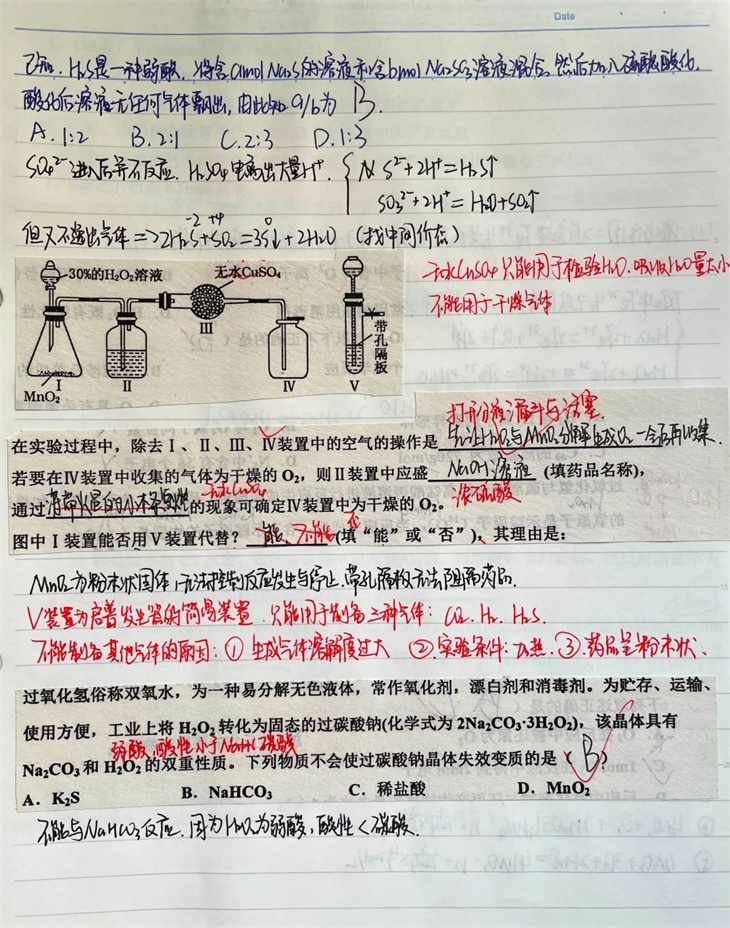 Date
已知,H₂S是一种弱酸,将含amol Na₂S的溶液和含bmol Na₂SO₃溶液混合,然后加入硫酸酸化,
酸化后溶液无任何气体飘出,由此知a/b为 B.
A. 1:2 B. 2:1 C. 2:3 D. 1:3
SO₄²⁻进入后并不反应. H₂SO₄电离出大量H⁺. { S²⁻+2H⁺=H₂S↑
SO₃²⁻+2H⁺=H₂O+SO₂↑
但又不逸出气体=>2H₂S+SO₂=3S↓+2H₂O (找中间价态)
-2 +4 0
30%的H₂O₂溶液
无水CuSO₄
带孔隔板
MnO₂
I II III IV V
无水CuSO₄只能用于检验H₂O.
不能用于干燥气体
打开分液漏斗与活塞.
在实验过程中,除去Ⅰ、Ⅱ、Ⅲ、Ⅳ装置中的空气的操作是 先让H₂O₂与MnO₂分解生成O₂一会再收集.
若要在Ⅳ装置中收集的气体为干燥的 O₂,则Ⅱ装置中应盛 NaOH溶液 (填药品名称),
浓硫酸
无水CuSO₄
通过 的现象可确定Ⅳ装置中为干燥的 O₂。
图中Ⅰ装置能否用Ⅴ装置代替? 能、不能 否 (填“能”或“否”),其理由是:
MnO₂为粉末状固体,无法控制反应发生与停止.带孔隔板无法阻隔药品.
V装置为启普发生器的简易装置.只能用于制备三种气体: CO₂. H₂. H₂S.
不能制备其他气体的原因:①生成气体溶解度过大 ②.实验条件:加热. ③.药品呈粉末状、
过氧化氢俗称双氧水,为一种易分解无色液体,常作氧化剂,漂白剂和消毒剂。为贮存、运输、
使用方便,工业上将 H₂O₂ 转化为固态的过碳酸钠(化学式为 2Na₂CO₃·3H₂O₂),该晶体具有
弱酸、酸性小于 碳酸
Na₂CO₃ 和 H₂O₂ 的双重性质。下列物质不会使过碳酸钠晶体失效变质的是( B )
A. K₂S B. NaHCO₃ C. 稀盐酸 D. MnO₂
不能与NaHCO₃反应.因为H₂O₂为弱酸,酸性<碳酸.